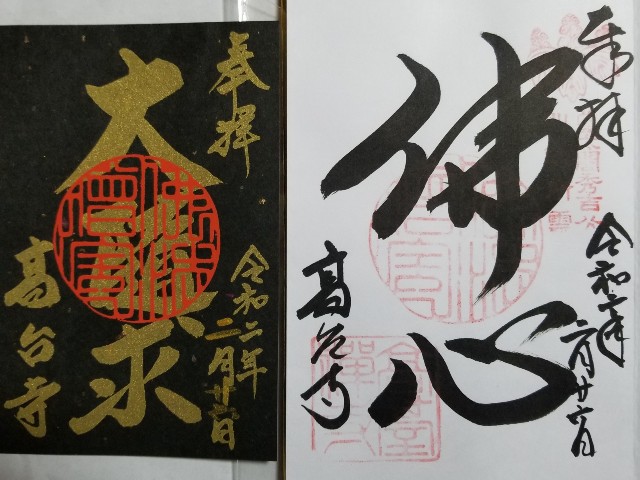 奉拝
大随求
令和二年
二月廿六日
高台寺
奉拝
佛心
令和二年
二月廿六日
高台寺